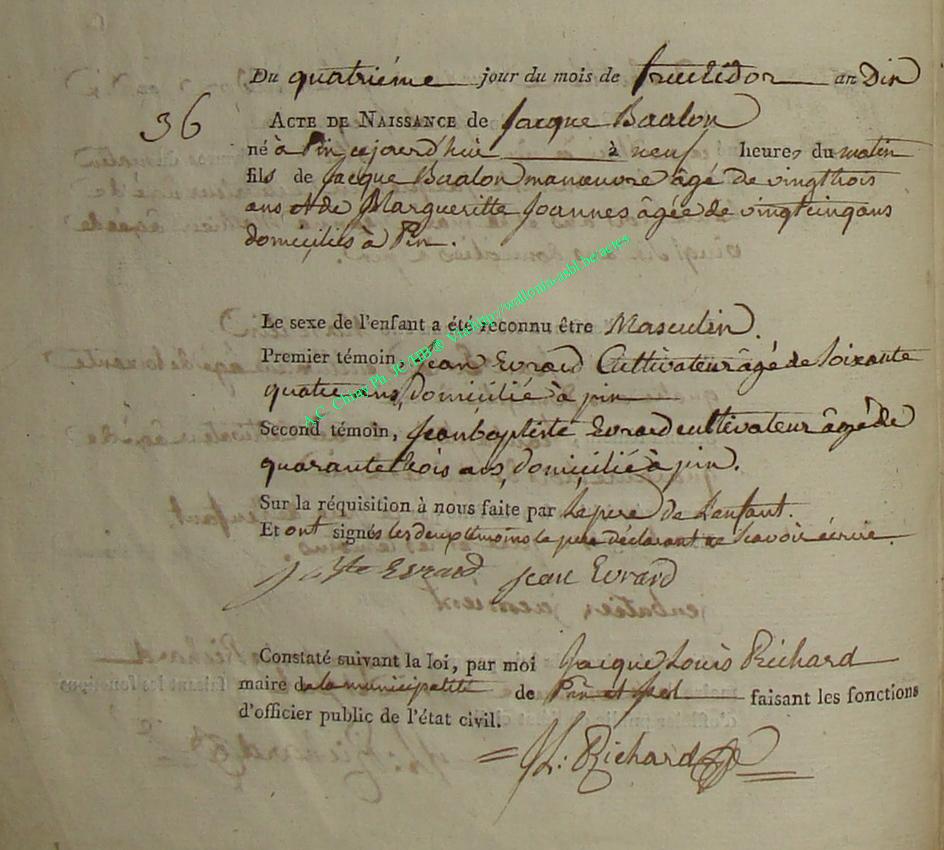 Du quatriéme jour du mois de fructidor an Dix
36
ACTE DE NAISSANCE de Jacque Baalon
né à Pin cejourd'hui à neuf heures du matin
fils de Jacque Baalon manœuvre âgé de vingt trois
ans et de Margueritte Joannes âgée de vingtcinq ans
domiciliés à Pin.
Le sexe de l'enfant a été reconnu être Masculin.
Premier témoin, Jean Evrard Cultivateur âgé de soixante
quatre ans, domicilié à pin
Second témoin, Jean baptiste Evrard cultivateur âgé de
quarante trois ans, domicilié à pin.
Sur la réquisition à nous faite par le pere de L'enfant.
Et ont signés les deux témoins le pere déclarant ne scavoir écrire.
J Bte Evrard Jean Evrard
Constaté suivant la loi, par moi Jacque Louis Richard
maire de la municipalité de Pin et faisant les fonctions
d'officier public de l'état civil.
JL: Richard